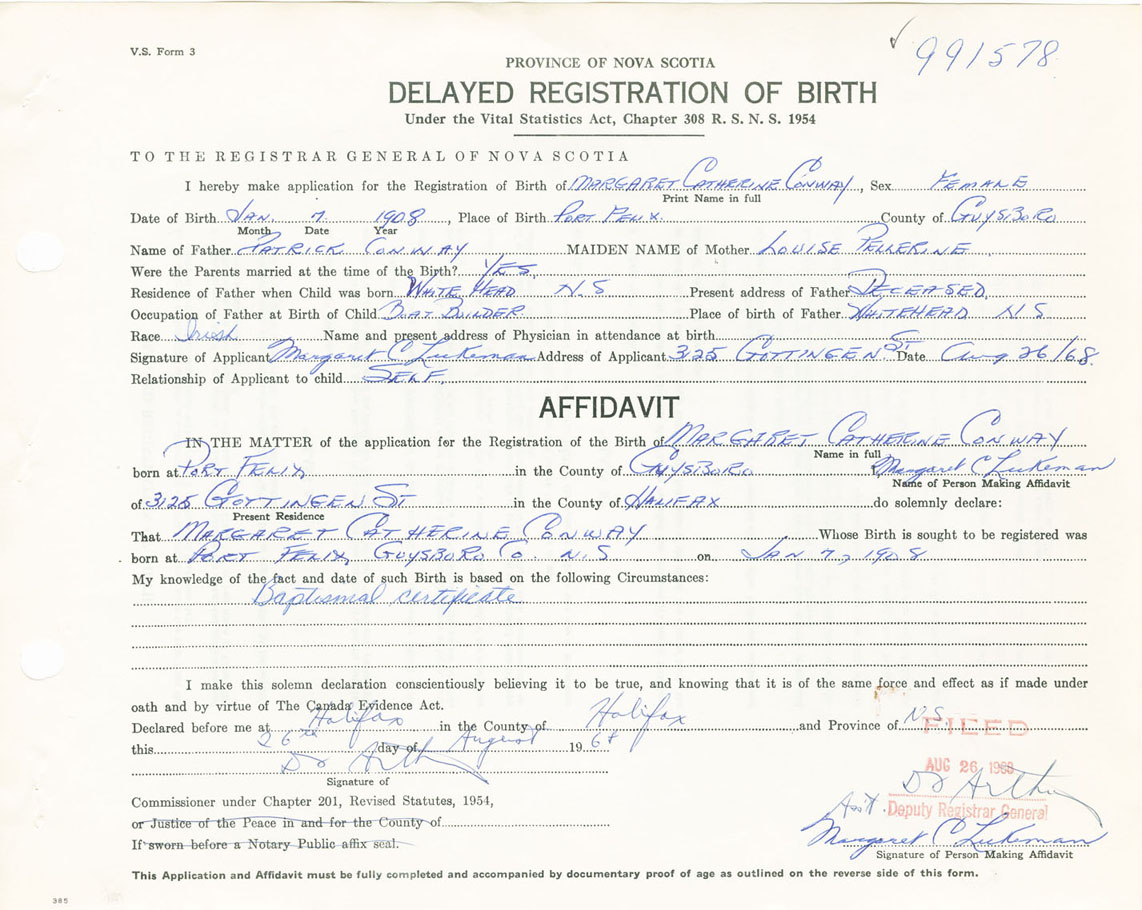 V.S. Form 3
991578
PROVINCE OF NOVA SCOTIA
DELAYED REGISTRATION OF BIRTH
Under the Vital Statistics Act, Chapter 308 R. S. N. S. 1954
TO THE REGISTRAR GENERAL OF NOVA SCOTIA
I hereby make application for the Registration of Birth of MARGARET CATHERINE CONWAY, Sex FEMALE
Print Name in full
Date of Birth JAN. 7 1908, Place of Birth PORT FELIX. County of GUYSBORO
Month Date Year
Name of Father PATRICK CONWAY MAIDEN NAME of Mother LOUISE PELLERINE
Were the Parents married at the time of the Birth? YES
Residence of Father when Child was born WHITE HEAD N.S Present address of Father DECEASED
Occupation of Father at Birth of Child BOAT BUILDER Place of birth of Father WHITEHEAD N S
Race Irish Name and present address of Physician in attendance at birth
Signature of Applicant Margaret C Lukeman Address of Applicant 3125 GOTTINGEN ST Date Aug 26/68.
Relationship of Applicant to child SELF.
AFFIDAVIT
IN THE MATTER of the application for the Registration of the Birth of MARGARET CATHERINE CONWAY
Name in full
born at PORT FELIX, in the County of GUYSBORO I, Margaret C Lukeman
Name of Person Making Affidavit
of 3125 GOTTINGEN ST in the County of HALIFAX do solemnly declare:
Present Residence
That MARGARET CATHERINE CONWAY Whose Birth is sought to be registered was
born at PORT FELIX, GUYSBORO CO. N.S on JAN 7, 1908
My knowledge of the fact and date of such Birth is based on the following Circumstances:
Baptismal certificate
I make this solemn declaration conscientiously believing it to be true, and knowing that it is of the same force and effect as if made under
oath and by virtue of The Canada Evidence Act.
Declared before me at Halifax in the County of Halifax and Province of N.S.
FILED
this 26th day of August 1968
AUG 26 1968
Signature of
Commissioner under Chapter 201, Revised Statutes, 1954,
Ass't. Deputy Registrar General
or Justice of the Peace in and for the County of
Margaret C Lukeman
If sworn before a Notary Public affix seal.
Signature of Person Making Affidavit
This Application and Affidavit must be fully completed and accompanied by documentary proof of age as outlined on the reverse side of this form.
385